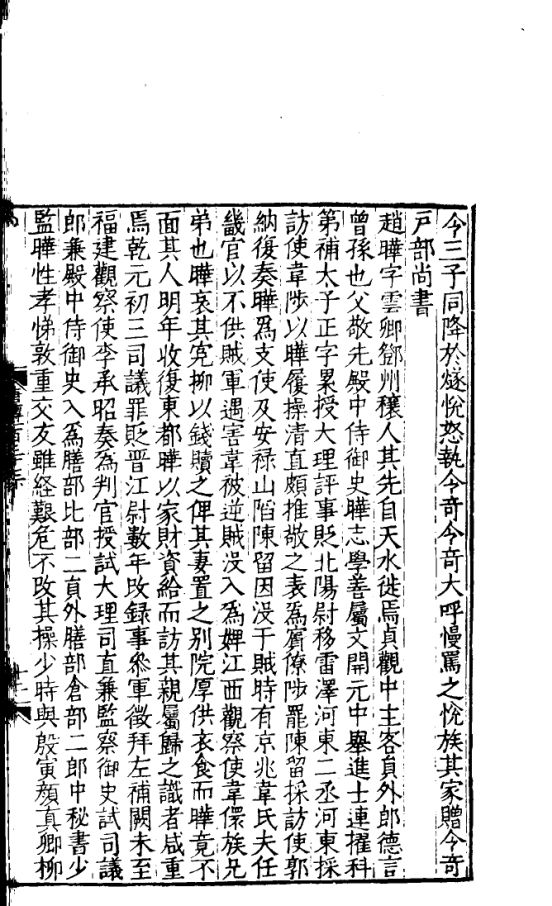 今三子同降於燧悅怒執令竒令竒大呼慢罵之悅族其家贈令竒
戸部尚書
趙曄字雲卿鄧州穰人其先自天水徙焉貞觀中主客員外郎德言
曾孫也父敬先殿中侍御史曄志學善屬文開元中舉進士連擢科
第補太子正字累授大理評事貶北陽尉移雷澤河東二丞河東採
訪使韋陟以曄履操清直頗推敬之表爲賔僚陟罷陳留採訪使郭
納復奏曄爲支使及安禄山陷陳留因没于賊時有京兆韋氏夫任
畿官以不供賊軍遇害韋被逆賊没入爲婢江西觀察使韋儇族兄
弟也曄哀其寃抑以錢贖之俾其妻置之别院厚供衣食而曄竟不
面其人明年收復東都曄以家財資給而訪其親屬歸之識者咸重
焉乾元初三司議罪貶晋江尉數年改録事叅軍徵拜左補闕未至
福建觀察使李承昭奏爲判官授試大理司直兼監察御史試司議
郎兼殿中侍御史入爲膳部比部二員外膳部倉部二郎中秘書少
監曄性孝悌敦重交友雖経艱危不改其操少時與殷寅顔真卿柳